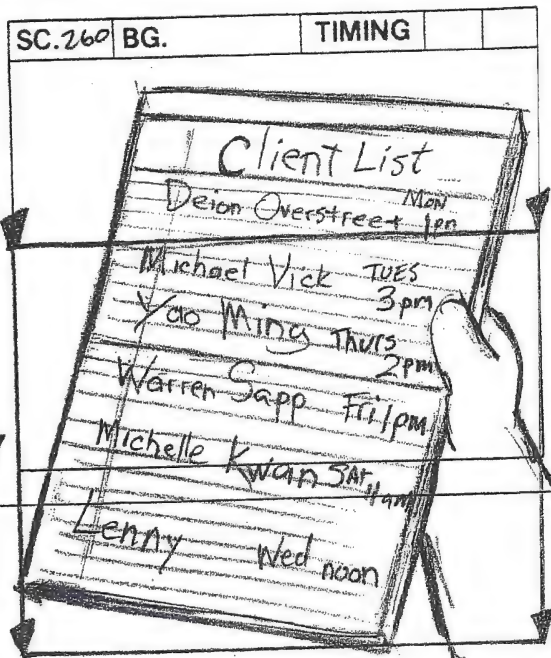 SC.260 BG. TIMING
Client List
Deion Overstreet Mon 1pm
Michael Vick TUES 3pm
Yao Ming Thurs 2pm
Warren Sapp Fri 1pm
Michelle Kwan SAT 11am
Lenny Wed noon